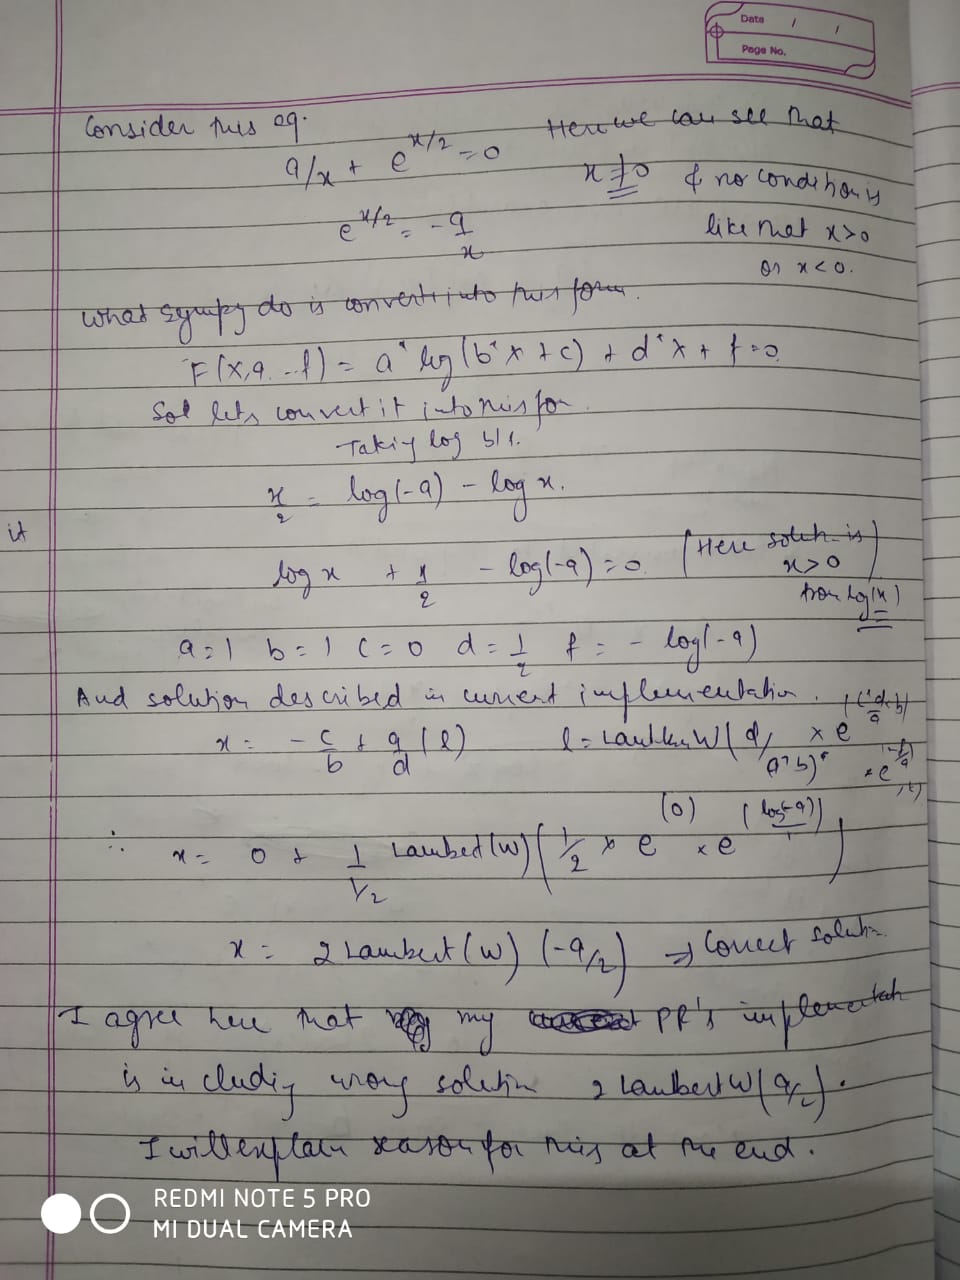 Date / /
Page No.
Consider this eq.
a/x + e^x/2 = 0
Here we can see that
x ≠ 0 & no condition is
like that x>0
or x<0.
e^x/2 = -a/x
What sympy do is convert into this form.
F(x,a..f) = a*log(b*x + c) + d*x + f = 0
Sol lets convert it into this for
Taking log b/s.
x/2 = log(-a) - log x.
it
log x + x/2 - log(-a) = 0
(Here soluti- is
x>0
from log(x))
a=1 b=1 c=0 d=1/2 f= - log(-a)
And solution described in current implementation.
x = -c/b + a/d (l) l = LambertW(d/(a*b) * e^(c*d/a*b) * e^(-f/a))
∴ x = 0 + 1/1/2 Lambert(W)(1/2 × e^(0) × e^(log(-a)/1))
x = 2 Lambert(W) (-a/2) ⇒ Correct solution.
I agree here that my PR's implementati
is including wrong solution 2 LambertW(a/2).
I will explain reason for this at the end.
REDMI NOTE 5 PRO
MI DUAL CAMERA